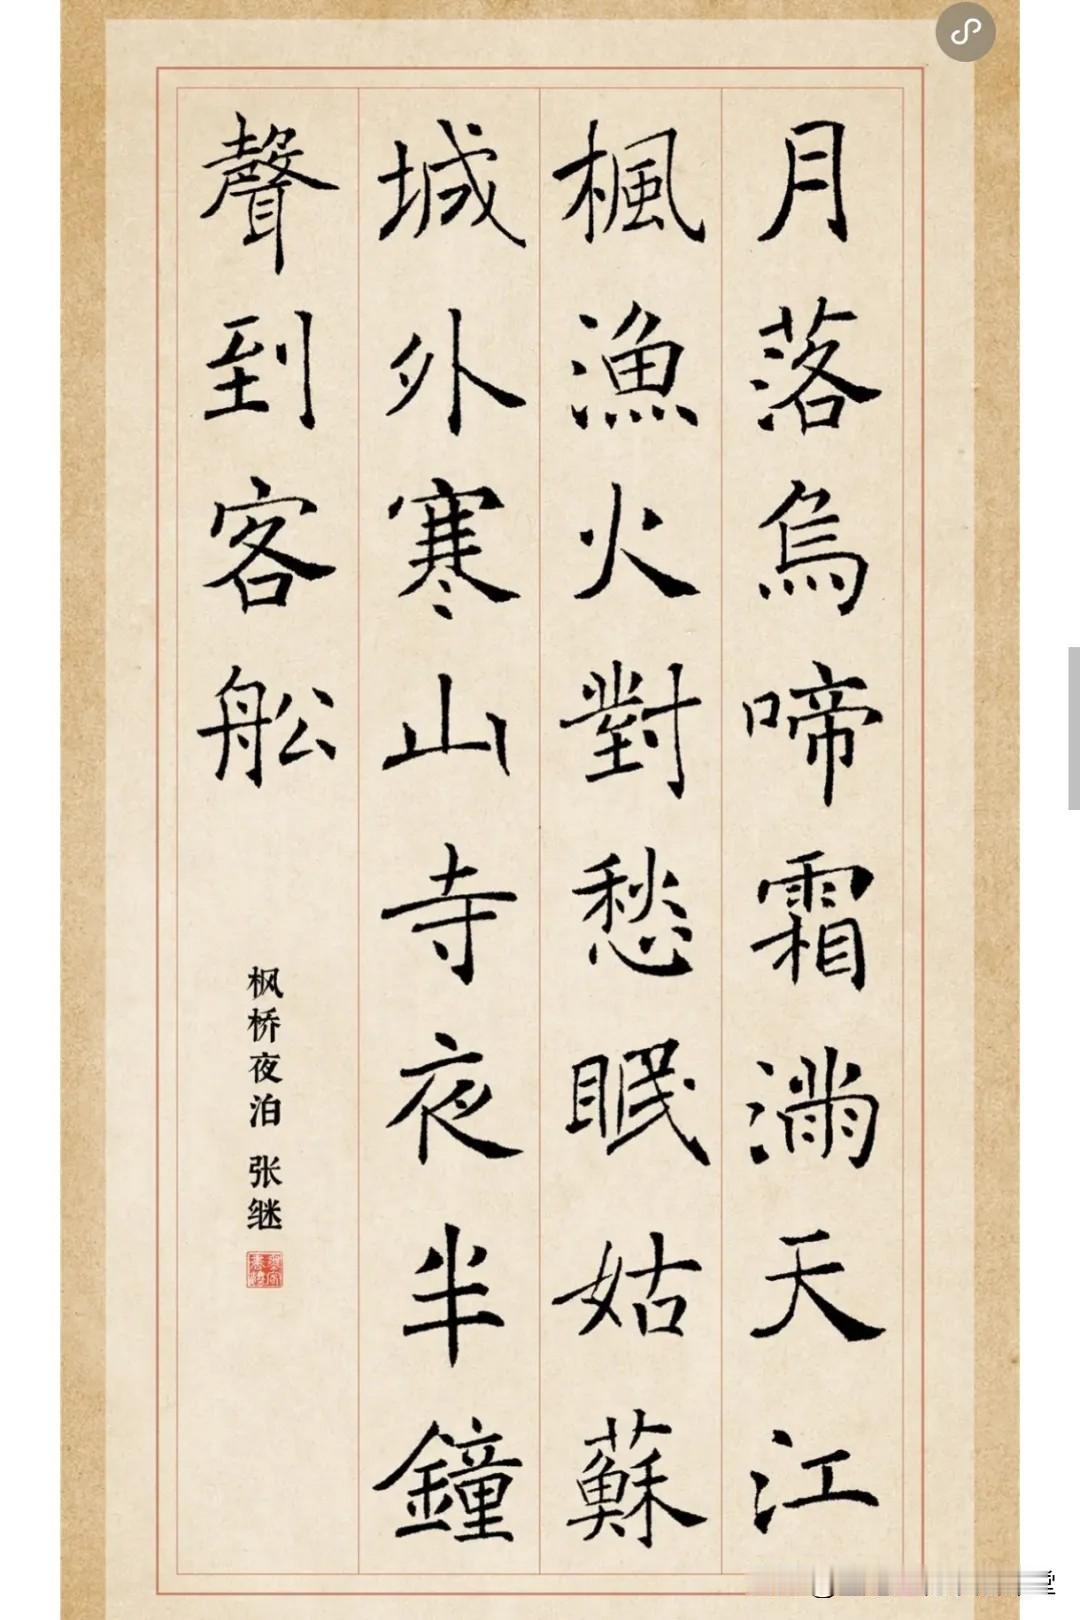 月落烏啼霜滿天江
楓漁火對愁眠姑蘇
城外寒山寺夜半鐘
聲到客舩
枫桥夜泊 张继